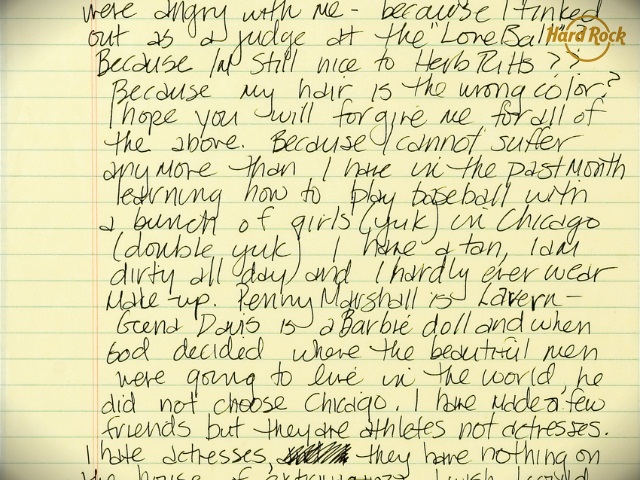 were angry with me - because I finked
out as a judge at the "Love Ball"?
Hard Rock
Because I'm still nice to Herb Ritts?
Because my hair is the wrong color?
I hope you will forgive me for all of
the above. Because I cannot suffer
any more than I have in the past month
learning how to play baseball with
a bunch of girls (yuk) in Chicago
(double yuk) I have a tan, I am
dirty all day and I hardly ever wear
make-up. Penny Marshall is Lavern-
Geena Davis is a Barbie doll and when
God decided where the beautiful men
were going to live in the world, he
did not choose Chicago. I have made a few
friends but they are athletes not actresses.
I hate actresses, they have nothing on
the house of extravaganza. I wish I could